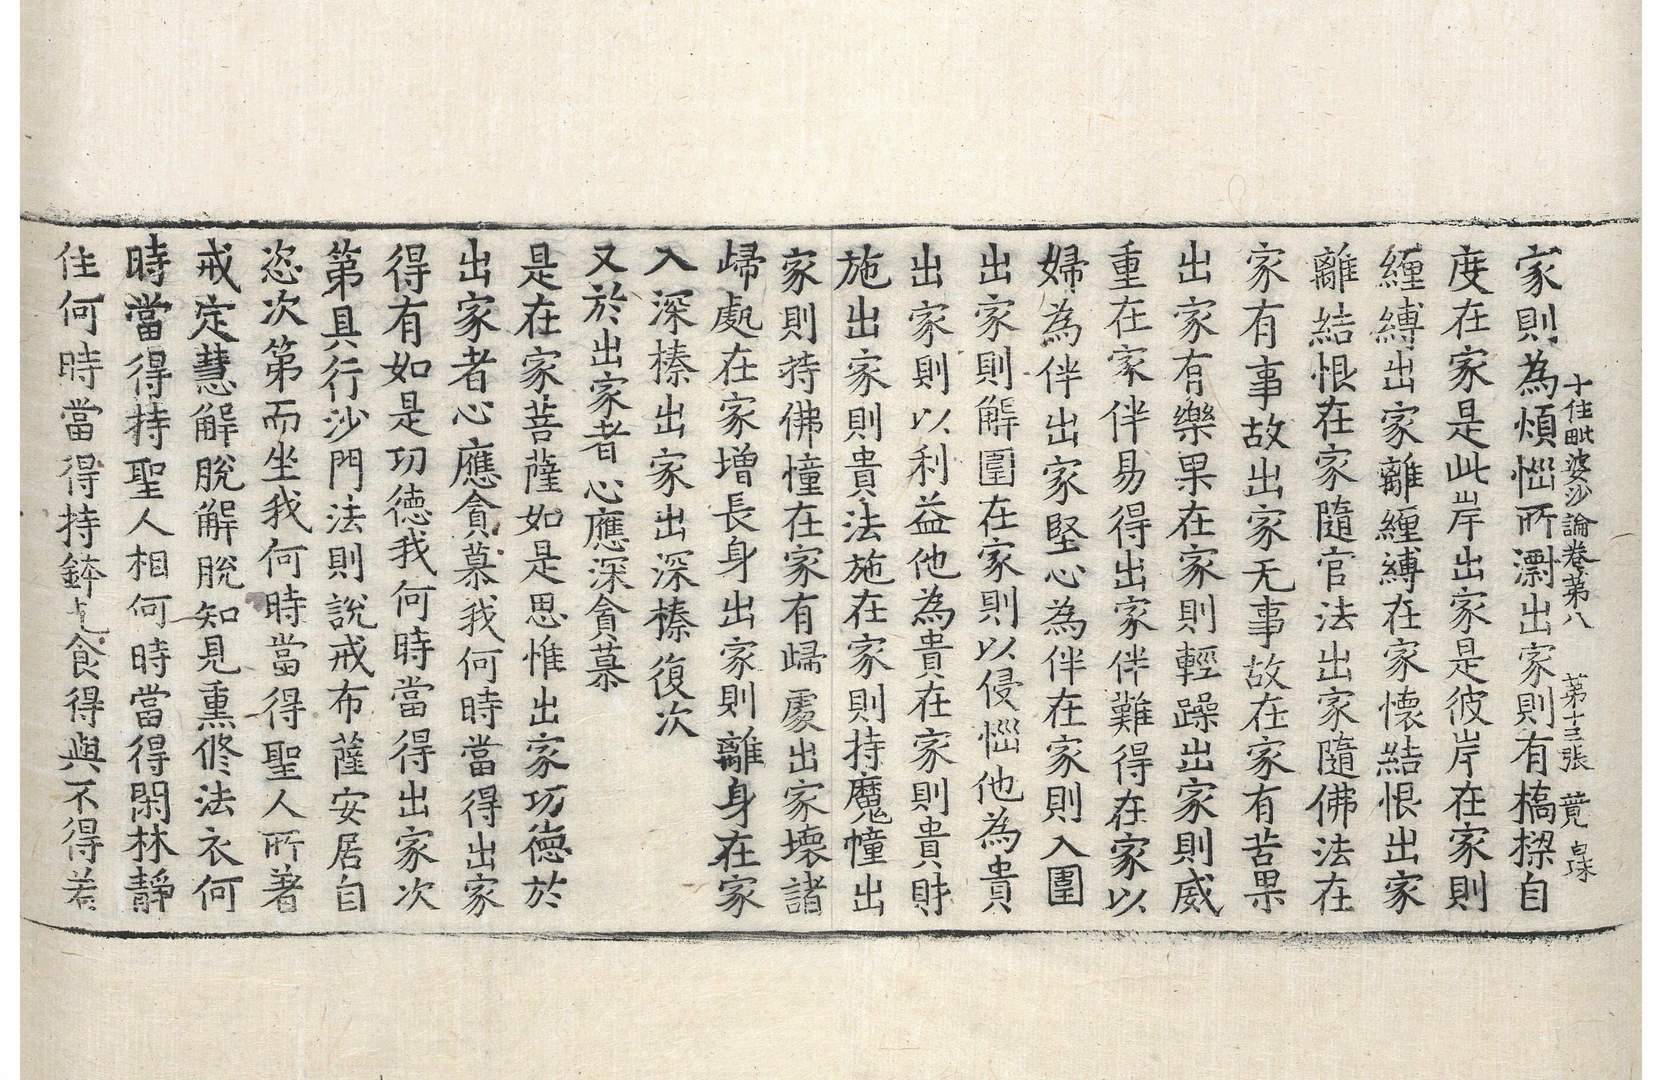 十住毗婆沙論卷第八 第十三張 竟
家則為煩惱所漂出家則有橋樑自
度在家是此岸出家是彼岸在家則
纏縛出家離纏縛在家懷結恨出家
離結恨在家隨官法出家隨佛法在
家有事故出家无事故在家有苦果
出家有樂果在家則輕躁出家則威
重在家伴易得出家伴難得在家以
婦為伴出家堅心為伴在家則入圍
出家則解圍在家則以侵惱他為貴
出家則以利益他為貴在家則貴財
施出家則貴法施在家則持魔幢出
家則持佛幢在家有歸處出家壞諸
歸處在家增長身出家則離身在家
入深榛出家出深榛復次
又於出家者心應深貪慕
是在家菩薩如是思惟出家功德於
出家者心應貪慕我何時當得出家
得有如是功德我何時當得出家次
第具行沙門法則說戒布薩安居自
恣次第而坐我何時當得聖人所著
戒定慧解脫解脫知見熏修法衣何
時當得持聖人相何時當得閑林靜
住何時當得持鉢乞食得與不得若